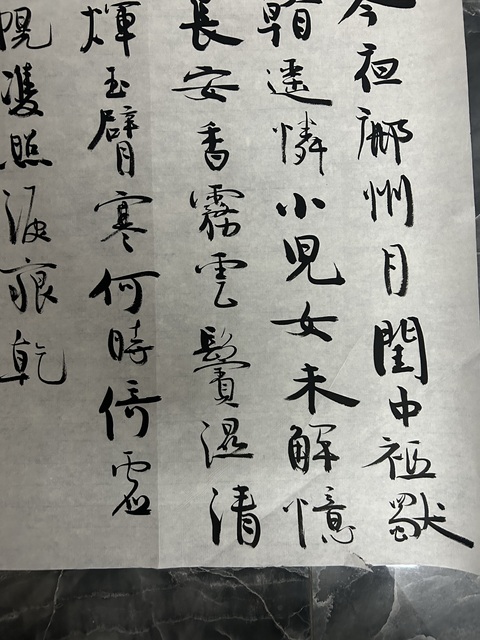 今夜鄜州月閨中祗獨
看遥憐小兒女未解憶
長安香霧雲鬟濕清
輝玉臂寒何時倚虛
幌雙照淚痕乾